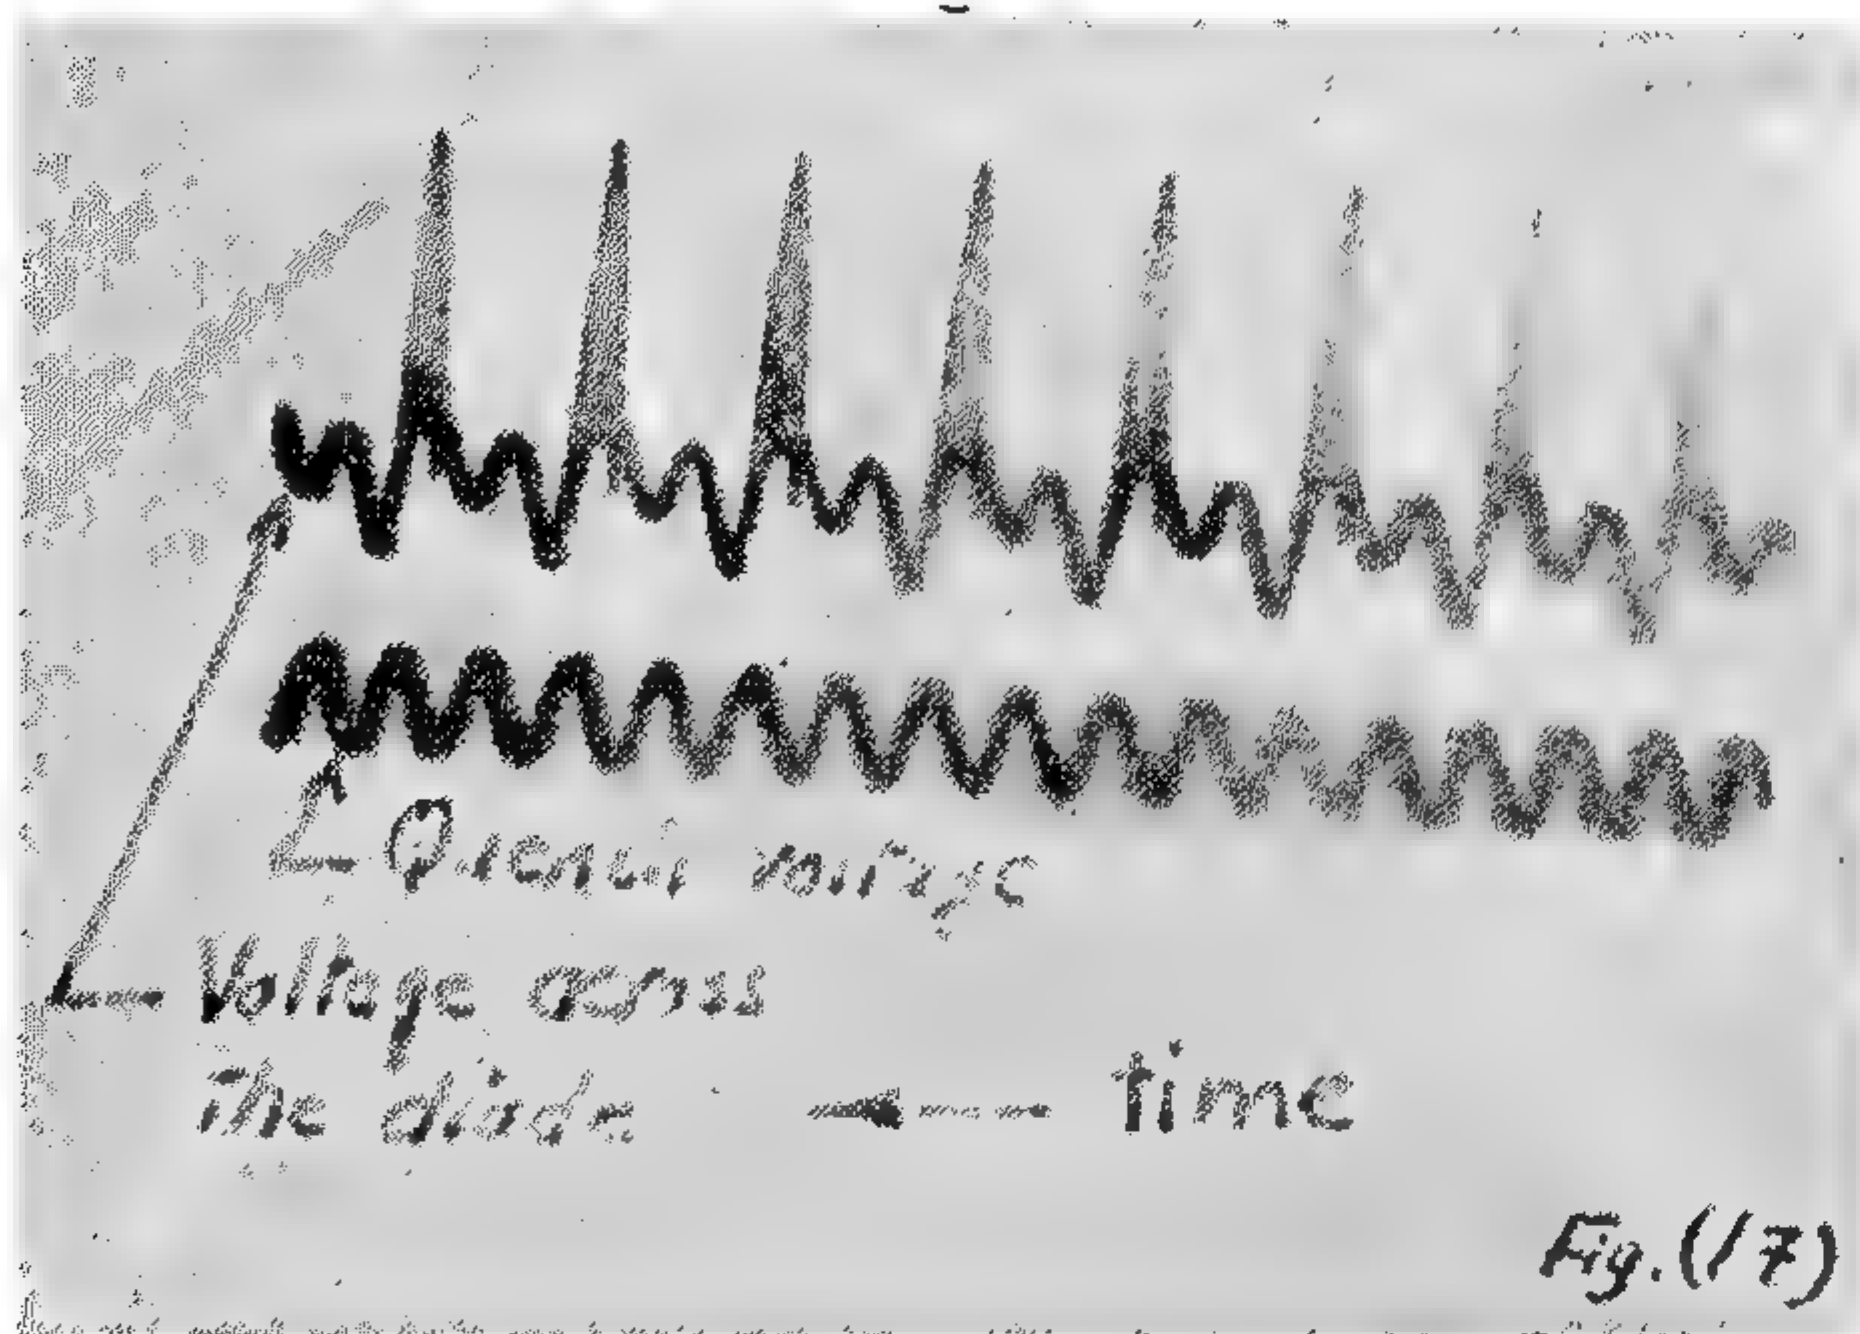 Quench voltage
Voltage across
The diode
time
Fig. (17)